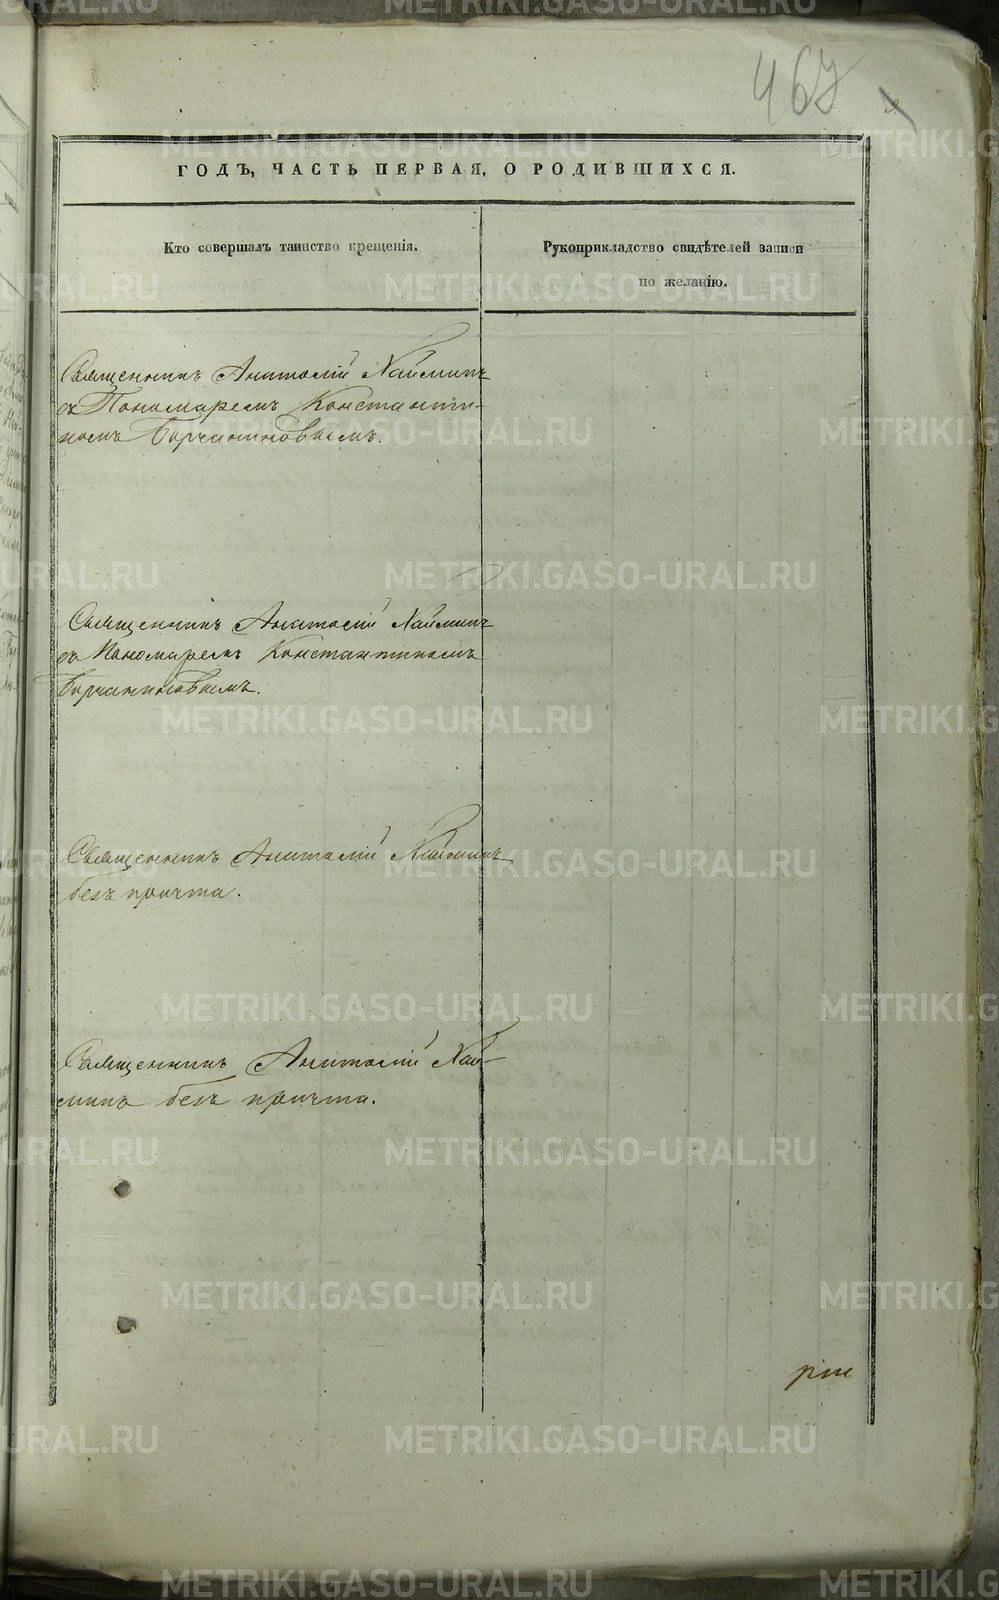 467
ГОДЪ, ЧАСТЬ ПЕРВАЯ, О РОДИВШИХСЯ.
Кто совершалъ таинство крещенія.
Рукоприкладство свидѣтелей записи
по желанію.
Священникъ Анатолій Наймикъ
съ Пономаремъ Константи-
номъ Борчаниновымъ.
Священникъ Анатолій Наймикъ
съ Пономаремъ Константиномъ
Борчаниновымъ.
Священникъ Анатолій Наймикъ
безъ причта.
Священникъ Анатолій Най-
микъ безъ причта.
METRIKI.GASO-URAL.RU